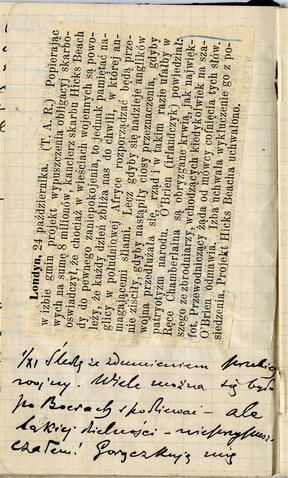 Londyn, 24 października. (T. A. R.) Popierając
w izbie gmin projekt wypuszczenia obligacyj skarbo-
wych na sumę 8 milionów, kanclerz skarbu Hicks Beach
oświadczył, że chociaż w wieściach wojennych są powo-
dy do pewnego zaniepokojenia, to jednak pamiętać na-
leży, że każdy dzień zbliża nas do chwili, w której an-
glicy w południowej Afryce rozporządzać będą prze-
magającemi siłami. Lecz gdyby się nadzieje anglików
nie ziściły, gdyby nastąpiły ciosy przeznaczenia, gdyby
wojna przedłużała się, rząd i w takim razie ufałby w
patryotyzm narodu. O'Brien (irlandczyk) powiedział:
Ręce Chamberlaina są obryzgane krwią, jak najwięk-
szego ze zbrodniarzy, wchodzących kiedykolwiek na sza-
fot. Przewodniczący żąda od mówcy cofnięcia tych słów.
O'Brien odmawia. Izba uchwala wykluczenie go z po-
siedzenia. Projekt Hicks Beacha uchwalono.
1/XI Śledzę ze zdumieniem przebieg
wojny. Wiele można się było
po Boerach spodziewać – ale
takiej dzielności – nieprzypusz-
czałem! Gorączkują mię